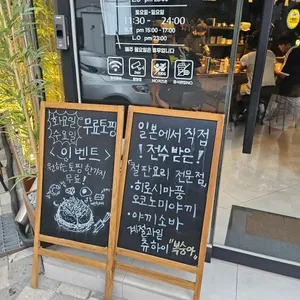 월요일-일요일
11:30 - 24:00
pm 15:00 - 17:00
L.O pm 23:00
매주 월요일은 휴무입니다
화요일
수요일
무료토핑
이벤트
원하는 토핑 한가지
무료!
일본에서 직접
!전수받은!
철판요리 전문점
·히로시마풍
오코노미야끼
·야끼소바
계절과일
츄하이